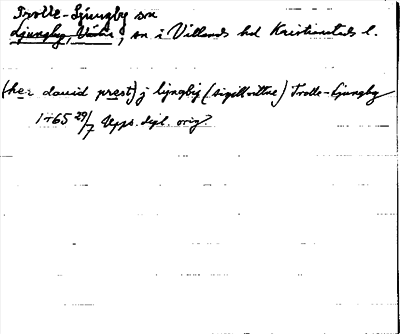 Trolle-Ljungby sn
Ljungby, Västra, sn i Villands hd Kristianstads l.
(her dauid prest) j liyngby (sigillvittne) Trolle-Ljungby
1465 29/7 Upps. dipl. orig